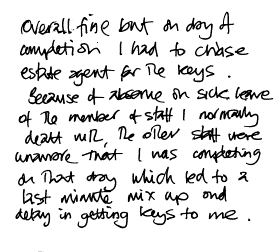 Overall fine but on day of
completion I had to chase
estate agent for the keys.
Because of absence on sick leave
of the member of staff I normally
dealt with, the other staff were
unaware that I was completing
on that day which led to a
last minute mix up and
delay in getting keys to me.